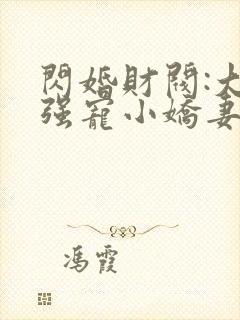 閃婚財閥:大
强寵小嬌妻
馮霞